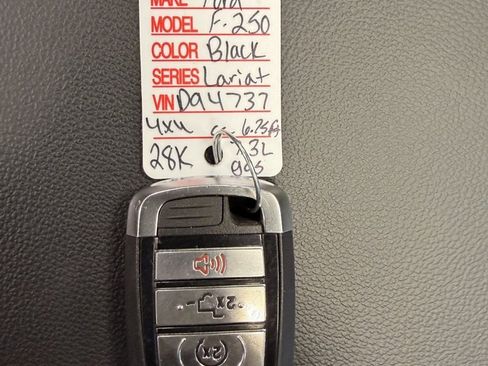 MAKE Ford
MODEL F-250
COLOR Black
SERIES Lariat
VIN D94737
4x4 6.75ft
28K 7.3L
gas
2x
2x